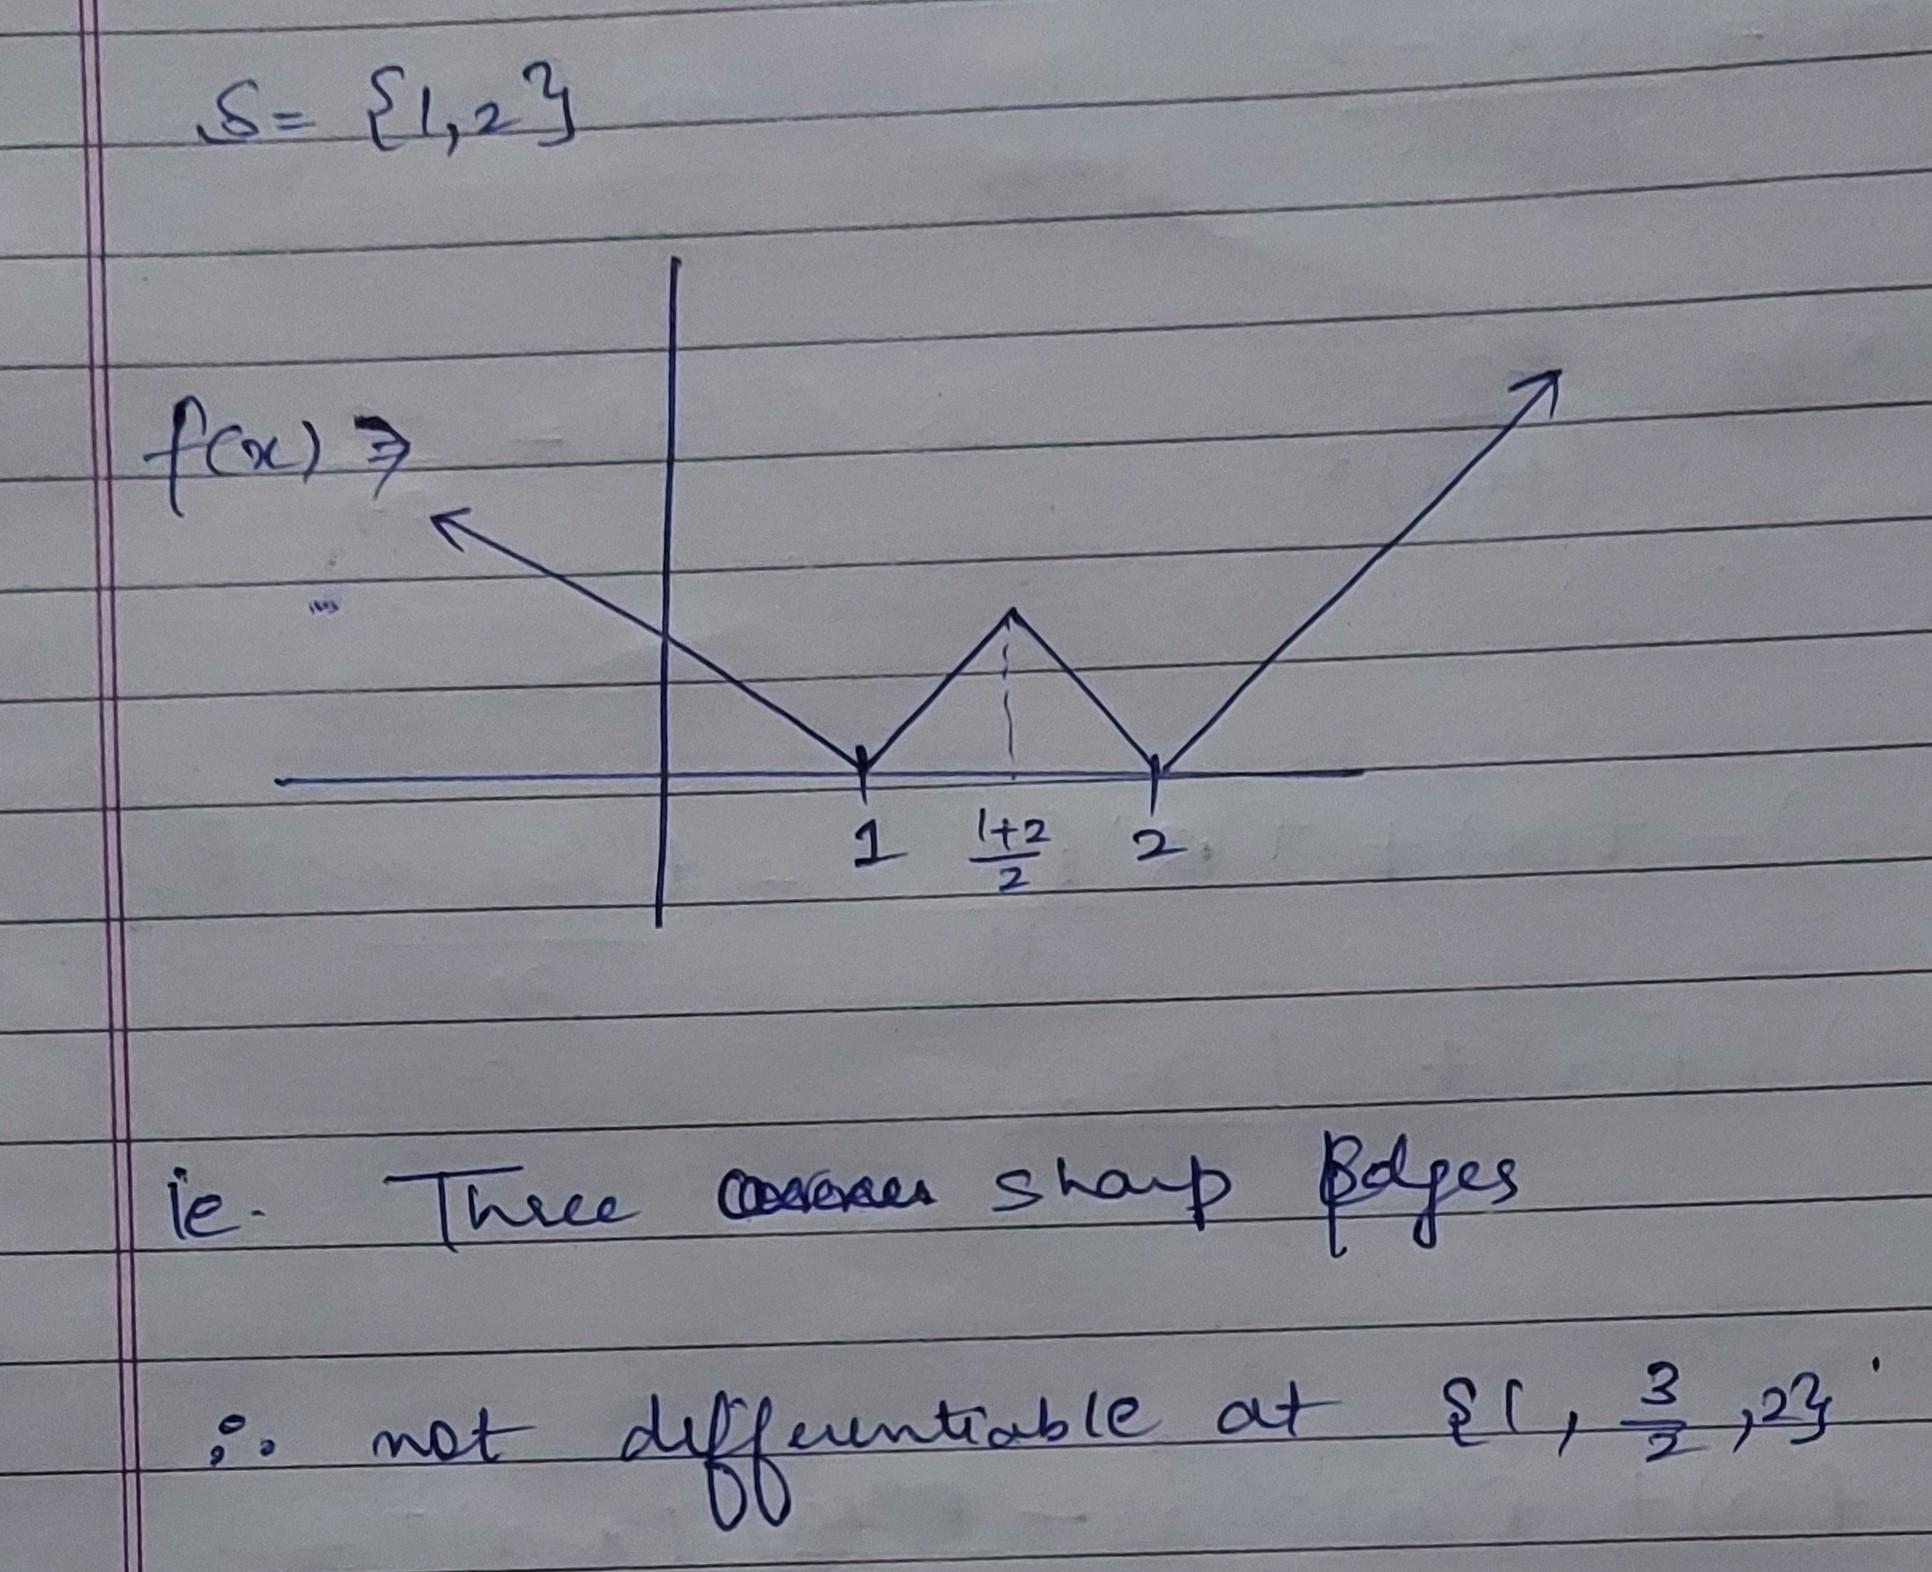 S = {1,2}
f(x) ⇒
1 (1+2)/2 2
ie. Three sharp Edges
∴ not differentiable at {1, 3/2, 2}